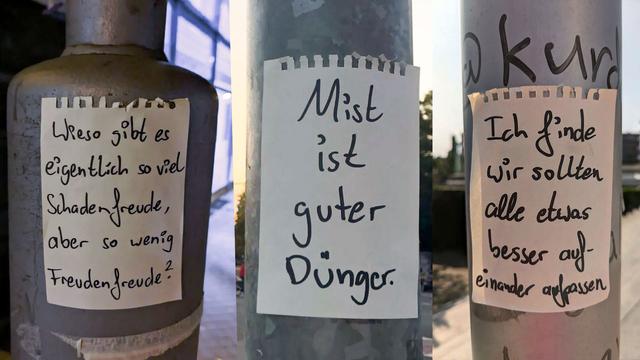 Wieso gibt es
eigentlich so viel
Schadenfreude,
aber so wenig
Freudenfreude?
Mist
ist
guter
Dünger.
kurd
Ich finde
wir sollten
alle etwas
besser auf-
einander aufpassen